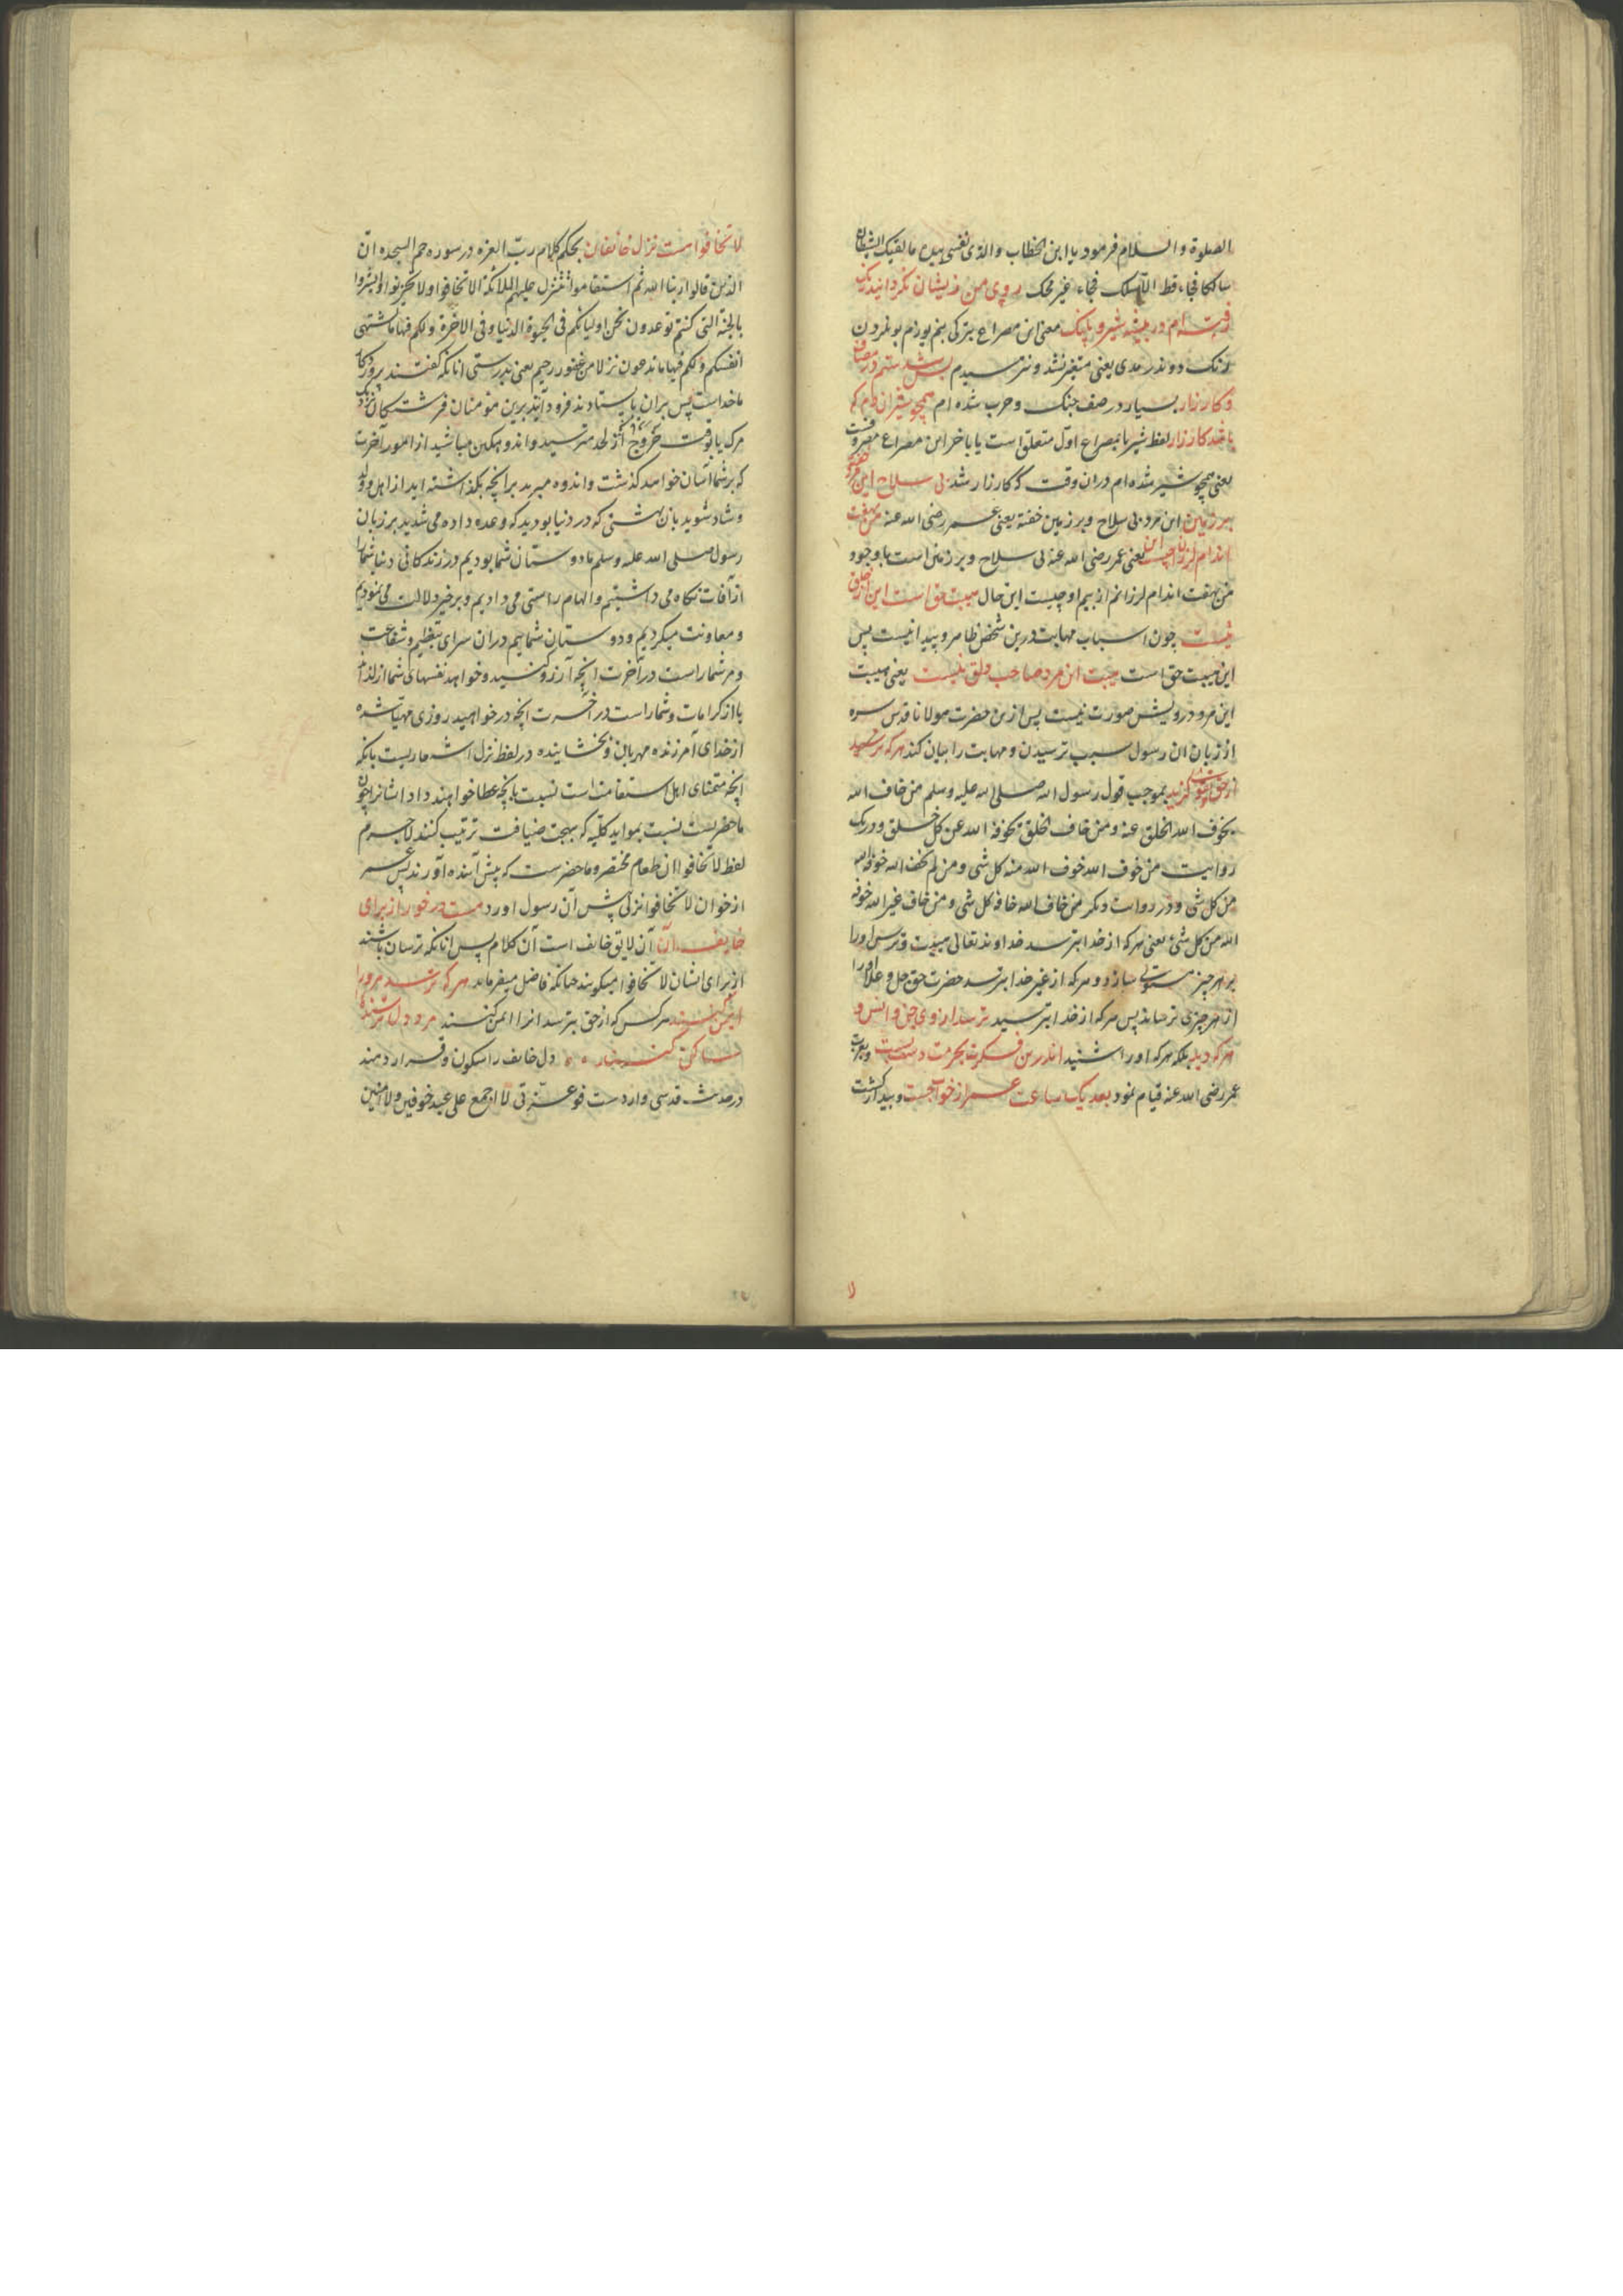 الصلوة والسلام فرمود یا ابن الخطاب والذی نفسی بیده ما لقیک الشیطان
سالکا فجاء قط الا سلک فجاء غیر فجک روی من زیشان نگردانید رنگ
رفته ام در بیشه شیر و پلنگ معنی این مصراع بترکی بنم یوزم بونلردن
رنک دوندرمدی یعنی متغیر نشد و نترسیدم بس شدستم در مصاف
و کارزار بسیار در صف جنک و حرب شده ام همچو شیر آن دم که
باشد کارزار لفظ شیر با بمصراع اول متعلق است یا باخر این مصراع مصروفست
یعنی همچو شیر شده ام دران وقت که کارزار شد بی سلاح این مرد خفته
بر زمین این مرد بی سلاح و بر زمین خفته یعنی عمر رضی الله عنه من بهفت
اندام لرزان چیست این یعنی عمر رضی الله عنه بی سلاح و بر زمین است باوجود
من بهفت اندام لرزانم از بیم او چیست این حال هیبت حق است این از خلق
نیست چون اسباب مهابت درین شخص ظاهر و پیدا نیست پس
این هیبت حق است هیبت این مرد صاحب دلق نیست یعنی هیبت
این مرد درویش صورت نیست پس ازین حضرت مولانا قدس سره
از زبان ان رسول سبب ترسیدن و مهابت را بیان کند هر که ترسید
از حق و تقوی گزید بموجب قول رسول الله صلی الله علیه وسلم من خاف الله
یخوف الله الخلق عنه ومن خاف الخلق یخوفه الله عن کل خلق ودر یک
روایت من خوف الله خوف الله منه کل شی ومن لم یخف الله خوفه الله
من کل شی ودر روایت دیکر من خاف الله خافه کل شی ومن خاف غیر الله خوفه
الله من کل شیء یعنی هر که از خدا بترسد خداوند تعالی هیبت و ترس اورا
بر هر چیز مستولی سازد و هر که از غیر خدا بترسد حضرت حق جل و علا اورا
از هر چیزی ترساند پس هر که از خدا بترسید ترسد از وی جن و انس و
هر که دید بلکه هر که اورا شنید اندرین فکرت بحرمت دست بست
عمر رضی الله عنه قیام نمود بعد یک ساعت عمر از خواب جست و بیدار کشت
لا تخافوا هست نزل خائفان بحکم کلام رب العزه در سوره حم السجده ان
الذین قالوا ربنا الله ثم استقاموا تتنزل علیهم الملائکة الا تخافوا ولا تحزنوا وابشروا
بالجنة التی کنتم توعدون نحن اولیائکم فی الحیوة الدنیا وفی الآخرة ولکم فیها ما تشتهی
انفسکم ولکم فیها ما تدعون نزلا من غفور رحیم یعنی بدرستی انانکه گفتند پروردکار
ما خداست پس بران بایستادند فرود آیند برین مؤمنان فرشتکان نزدیک
مرک یا بوقت خروج از لحد مترسید واندوهکین مباشید از امور آخرت
که بر شما آسان خواهد کذشت واندوه مبرید برانچه بکذاشته اید از اهل وولد
و شاد شوید بان بهشتی که در دنیا بودید که وعده داده می شدید بر زبان
رسول صلی الله علیه وسلم ما دوستان شما بودیم در زندکانی دنیا شما را
از آفات نکاه می داشتیم و الهام راستی می دادیم و بر خیر دلالت می نمودیم
و معاونت میکردیم و دوستان شماییم دران سرای بتعظیم و شفاعت
و مر شما راست در آخرت انچه آرزو کنید و خواهد نفسهای شما از لذات
یا از کرامات و شما راست در آخرت انچه در خواهید روزی مهیا شده
از خدای آمرزنده مهربان و بخشاینده در لفظ نزل اشعاریست بانکه
انچه متمنای اهل استقامت است نسبت بانچه عطا خواهند داد ایشانرا چون
ماحضریست نسبت بمواید کلیه که بجهت ضیافت ترتیب کنند لاجرم
لفظ لا تخافوا ان طعام مختصر و ماحضرست که پیش آینده آورند پس عمر
از خوان لا تخافوا نزلی پیش آن رسول اورد هست در خور از برای
خایف آن آن لایق خایف است آن کلام پس انانکه ترسان باشند
از برای ایشان لا تخافوا میکویند چنانکه فاضل میفرماید هر که ترسد مر ورا
ایمن کنند هر کس که از حق بترسد انرا ایمن کنند مر دل ترسنده را
ساکن کنند دل خایف را سکون و قرار دهند
در حدیث قدسی واردست فوعزتی لا اجمع علی عبد خوفین ولا امنین